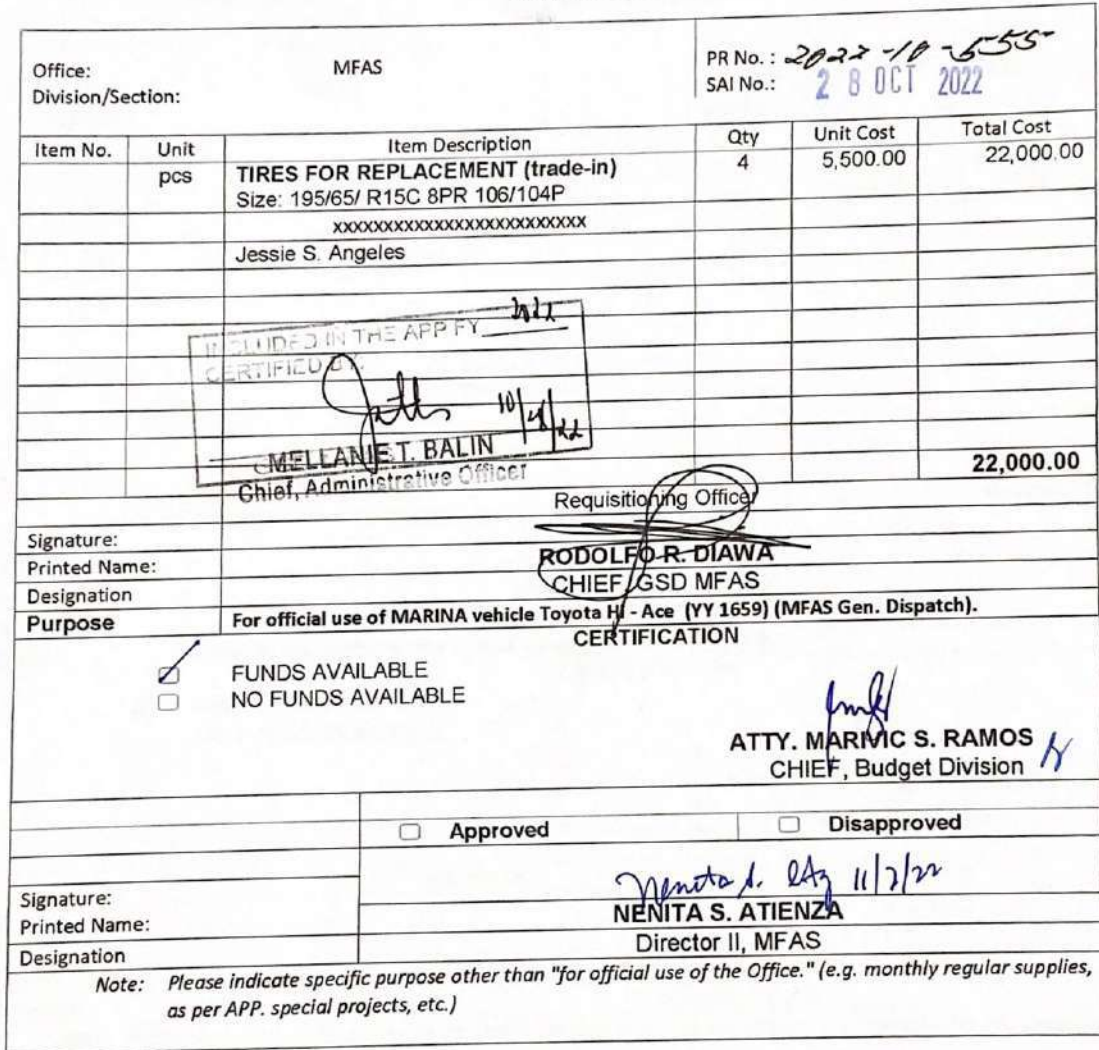 Office: MFAS
PR No.: 2022-10-555
Division/Section:
SAI No.: 28 OCT 2022
Item No. Unit Item Description Qty Unit Cost Total Cost
pcs TIRES FOR REPLACEMENT (trade-in) 4 5,500.00 22,000.00
Size: 195/65/ R15C 8PR 106/104P
xxxxxxxxxxxxxxxxxxxxxxxxx
Jessie S. Angeles
INCLUDED IN THE APP FY 2022
CERTIFIED BY:
MELLANIE T. BALIN
Chief, Administrative Officer
22,000.00
Requisitioning Officer
Signature:
Printed Name: RODOLFO R. DIAWA
Designation CHIEF, GSD MFAS
Purpose For official use of MARINA vehicle Toyota Hi - Ace (YY 1659) (MFAS Gen. Dispatch).
CERTIFICATION
FUNDS AVAILABLE
NO FUNDS AVAILABLE
ATTY. MARIVIC S. RAMOS
CHIEF, Budget Division
Approved Disapproved
Signature:
Printed Name: NENITA S. ATIENZA
Designation Director II, MFAS
Note: Please indicate specific purpose other than "for official use of the Office." (e.g. monthly regular supplies,
as per APP. special projects, etc.)